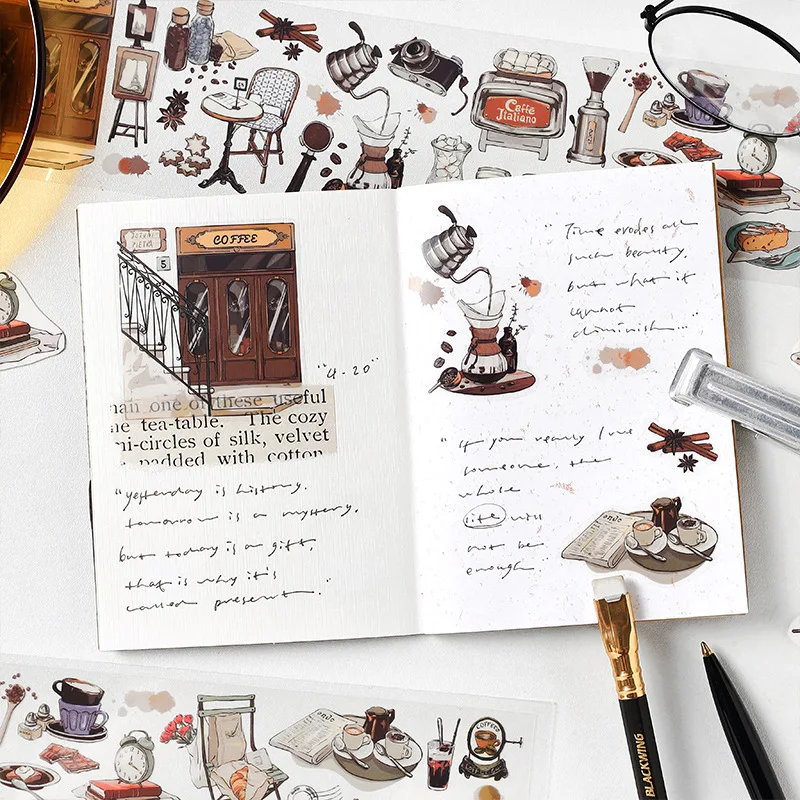 Caffè
Italiano
COFFEE
5
"4-20"
han one of these useful
he tea-table. The cozy
mi-circles of silk, velvet
padded with cotton
"yesterday is history.
tomorrow is a mystery.
but today is a gift,
that is why it's
called present."
"Time erodes all
such beauty.
but what it
cannot
diminish..."
"if you really love
someone, the
whose
life will
not be
enough
COFFEE
BLACKWING